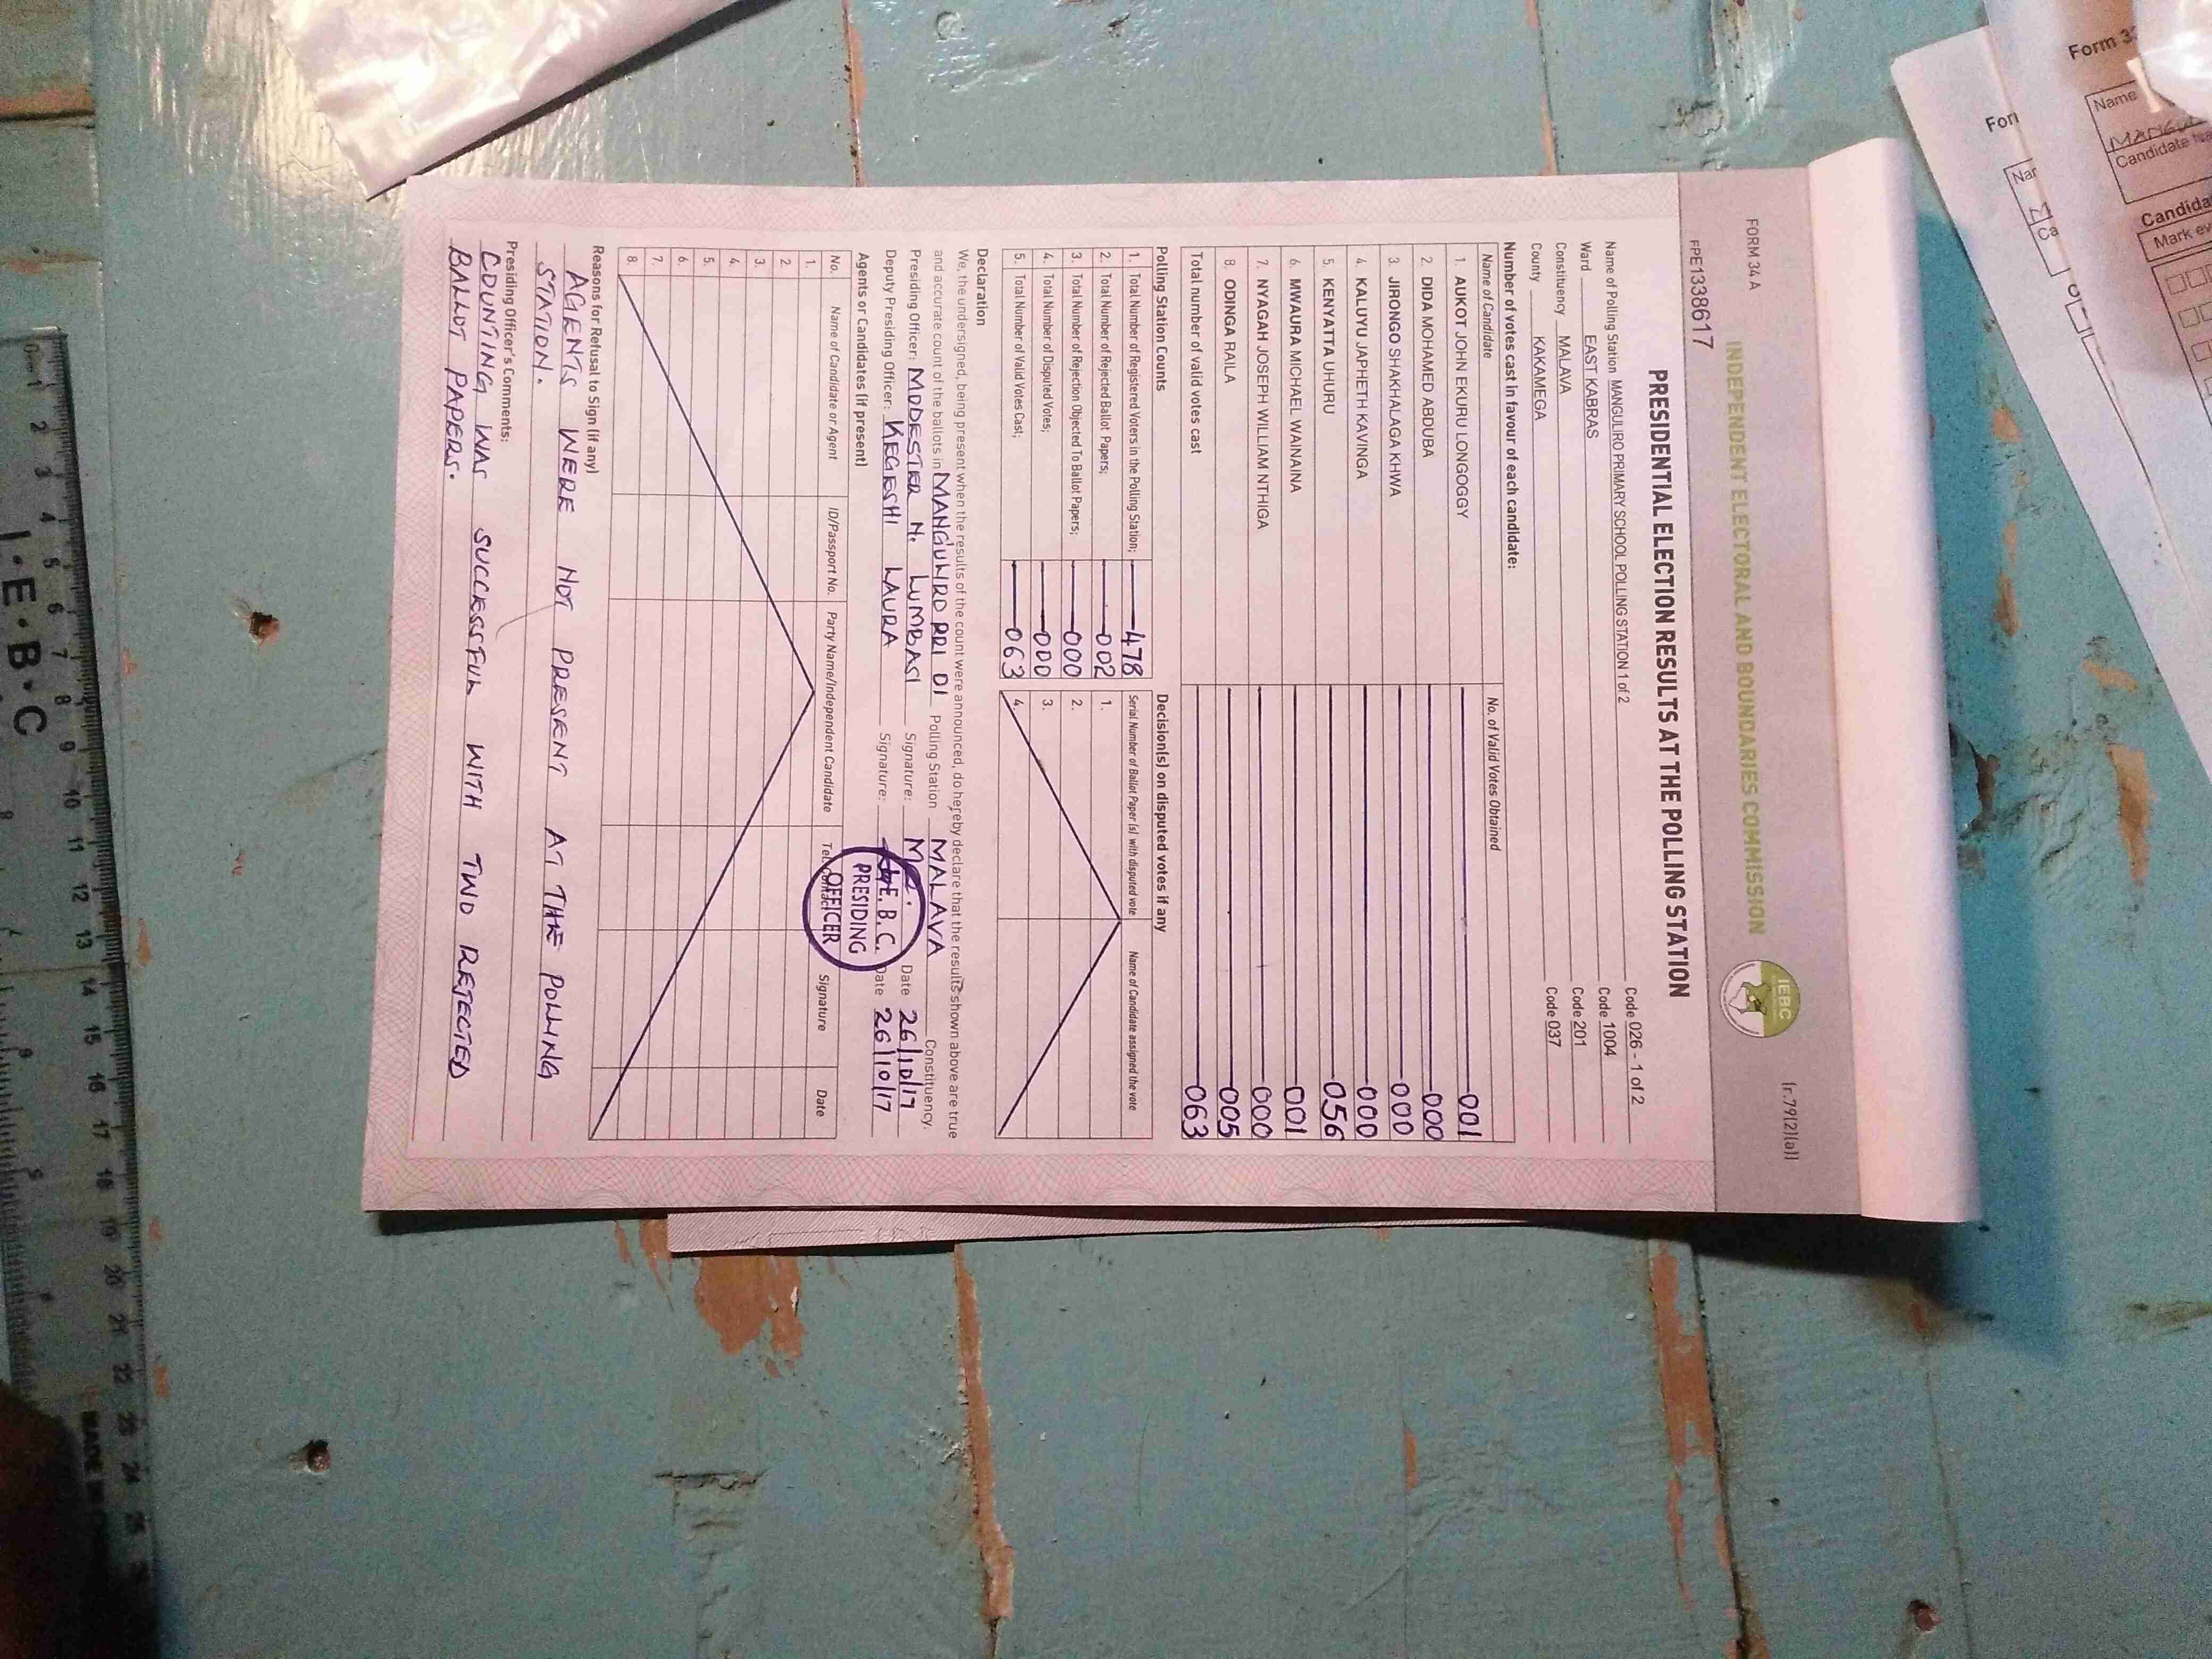 FORM 34 A
(r.79(2)(a))
INDEPENDENT ELECTORAL AND BOUNDARIES COMMISSION
IEBC
PPE1338617
PRESIDENTIAL ELECTION RESULTS AT THE POLLING STATION
Name of Polling Station MANGULIRO PRIMARY SCHOOL POLLING STATION 1 of 2 Code 026 - 1 of 2
Ward EAST KABRAS Code 1004
Constituency MALAVA Code 201
County KAKAMEGA Code 037
Number of votes cast in favour of each candidate:
Name of Candidate No. of Valid Votes Obtained
1. AUKOT JOHN EKURU LONGOGGY 001
2. DIDA MOHAMED ABDUBA 000
3. JIRONGO SHAKHALAGA KHWA 000
4. KALUYU JAPHETH KAVINGA 000
5. KENYATTA UHURU 056
6. MWAURA MICHAEL WAINAINA 001
7. NYAGAH JOSEPH WILLIAM NTHIGA 000
8. ODINGA RAILA 005
Total number of valid votes cast 063
Polling Station Counts Decision(s) on disputed votes if any
1. Total Number of Registered Voters in the Polling Station; 478 Serial Number of Ballot Paper (s) with disputed vote Name of Candidate assigned the vote
2. Total Number of Rejected Ballot Papers; 002 1.
3. Total Number of Rejection Objected To Ballot Papers; 000 2.
4. Total Number of Disputed Votes; 000 3.
5. Total Number of Valid Votes Cast; 063 4.
Declaration
We, the undersigned, being present when the results of the count were announced, do hereby declare that the results shown above are true
and accurate count of the ballots in MANGULIRO PRI 01 Polling Station MALAVA Constituency.
Presiding Officer: MODESTER N. LUMBASI Signature: Date 26/10/17
Deputy Presiding Officer: KEGESHI LAURA Signature: Date 26/10/17
I.E.B.C.
PRESIDING
OFFICER
Agents or Candidates (if present)
No. Name of Candidate or Agent ID/Passport No. Party Name/Independent Candidate Tel. Contact Signature Date
1.
2.
3.
4.
5.
6.
7.
8.
Reasons for Refusal to Sign (if any)
AGENTS WERE NOT PRESENT AT THE POLLING
STATION.
Presiding Officer's Comments:
COUNTING WAS SUCCESSFUL WITH TWO REJECTED
BALLOT PAPERS.
I.E.B.C
0 1 2 3 4 5 6 7 8 9 10 11 12 13 14 15 16 17 18 19 20 21 22 23 24 25
Form 3
Name
Candidate
Candida
Mark ev